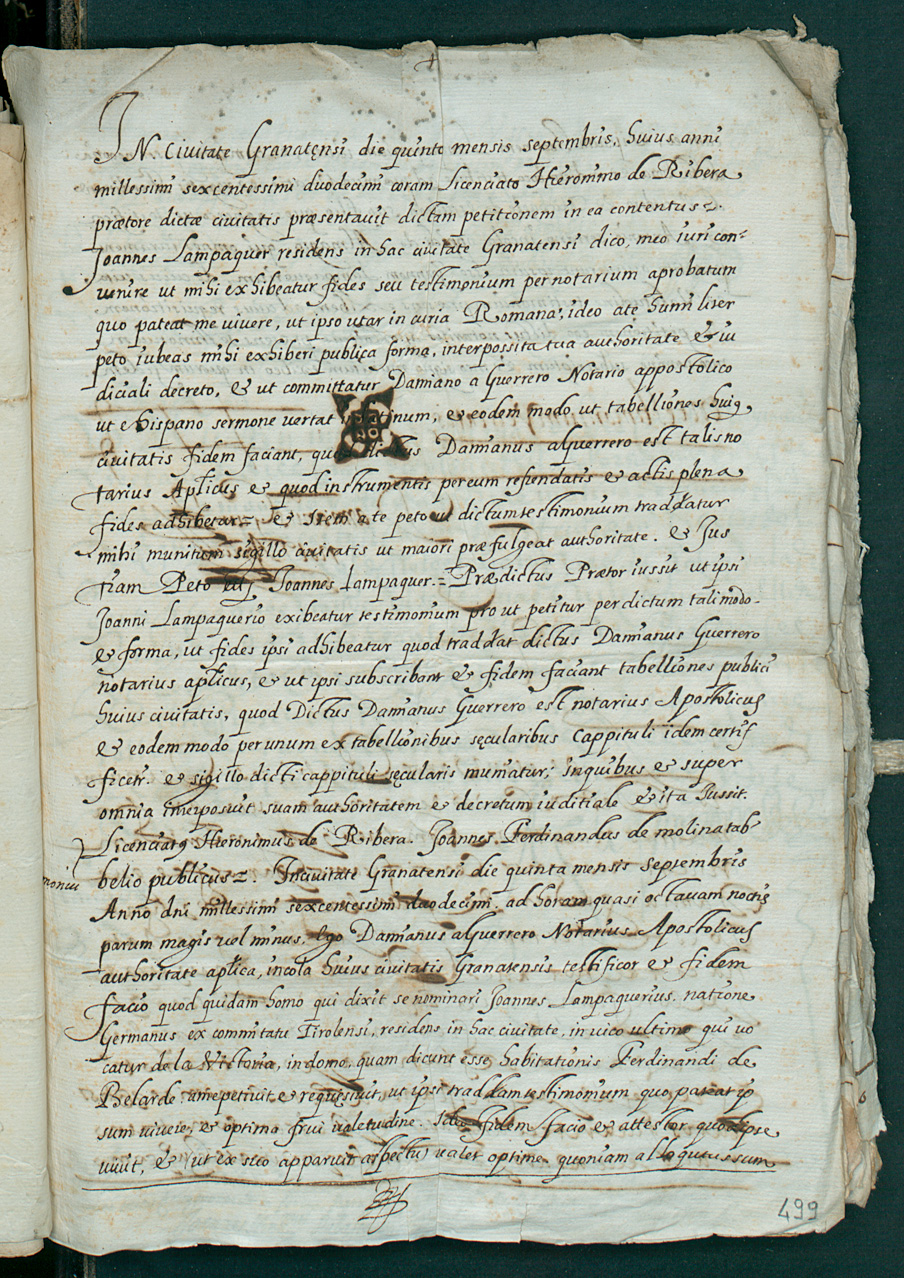 +
IN Civitate Granatensi die quinto mensis septembris, huius anni
millessimi sexcentessimi duodecimi coram Licenciato Hieronimo de Ribera
prætore dictæ civitatis præsentavit dictam petitionem in ea contentus =.
Joannes Lampaquer residens in hac civitate Granatensi dico, meo iuri con=
venire ut mihi exhibeatur fides seu testimonium per notarium aprobatum
quo pateat me vivere, ut ipso utar in curia Romana, ideo a te humiliter
peto iubeas mihi exhiberi publica forma, interpossita tua authoritate & iu
diciali decreto, & ut committatur Damiano a Guerrero Notario appostolico
ut ex hispano sermone vertat in latinum, & eodem modo ut tabelliones huiꝰ
civitatis fidem faciant, quod dictus Damianus a Guerrero est talis no
tarius Aplicus & quod instrumentis per eum refendatis & actis plena
fides adhibetur = & Item a te peto ut dictum testimonium traddatur
mihi munitum sigillo civitatis ut maiori præfulgeat authoritate. & Jus
tiam Peto Joannes Lampaquer. = Prædictus Prætor iussit ut ipsi
Joanni Lampaquerio exibeatur testimonium pro ut petitur per dictum tali modo
& forma, ut fides ipsi adhibeatur quod traddat dictus Damianus Guerrero
notarius aplicus, & ut ipsi subscribant & fidem faciant tabelliones publici
huius civitatis, quod Dictus Damianus Guerrero est notarius Apostolicus
& eodem modo per unum ex tabellionibus sęcularibus Cappituli idem certif
ficetr. & sigillo dicti cappituli sęcularis muniatur, inquibus & super
omnia interposuit suam authoritatem & decretum iuditiale & ita Jussit.
Licenciatꝰ Hieronimus de Ribera. Joannes Ferdinandus de molina tab
monium
belio publicus =. In civitate Granatensi die quinta mensis Septembris
Anno dni millessimi sexcentessimi duodecimi. ad horam quasi octavam noctis
parum magis vel minus, Ego Damianus a Guerrero Notarius Apostolicus
authoritate aplica, incola huius civitatis Granatensis testificor & fidem
facio quod quidam homo qui dixit se nominari Joannes Lampaquerius, natione
Germanus ex commitatu Tirolensi, residens in hac civitate, in vico ultimo qui vo
catur de la Victoria, in domo, quam dicunt esse habitationis Ferdinandi de
Belarde a me petivit & requisivit, ut ipsi traddam testimonium quo pateat ip
sum vivere, & optima frui valetudine. Ideo fidem facio & attestor quod ipse
vivit, & (ut ex suo apparuit aspectu) valet optime. quoniam alloqutus sum
499